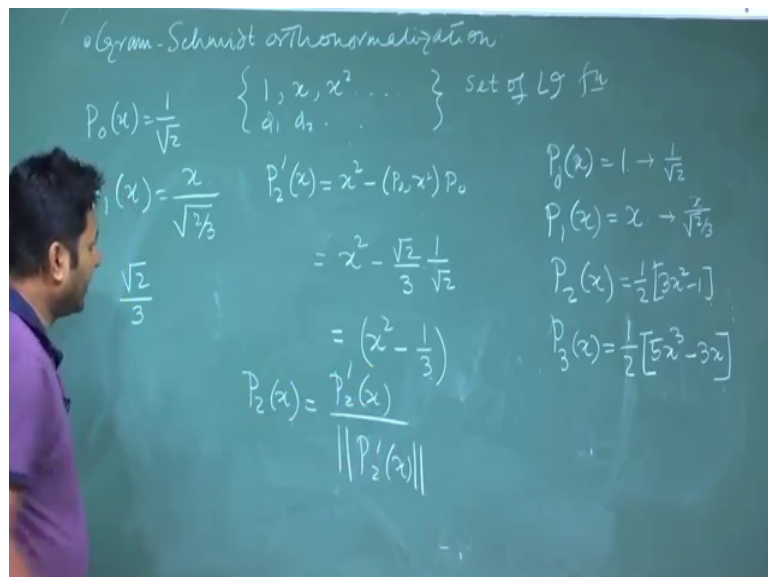 Gram-Schmidt orthonormalization
{ 1, x, x² .... } set of LI fn
d₁ d₂ . . .
P₀(x) = 1/√2
₁(x) = x/√(2/3)
√2/3
P₂'(x) = x² - (P₀, x²) P₀
= x² - √2/3 · 1/√2
= (x² - 1/3)
P₂(x) = P₂'(x) / ||P₂'(x)||
P₀(x) = 1 → 1/√2
P₁(x) = x → x/√(2/3)
P₂(x) = 1/2 [3x² - 1]
P₃(x) = 1/2 [5x³ - 3x]